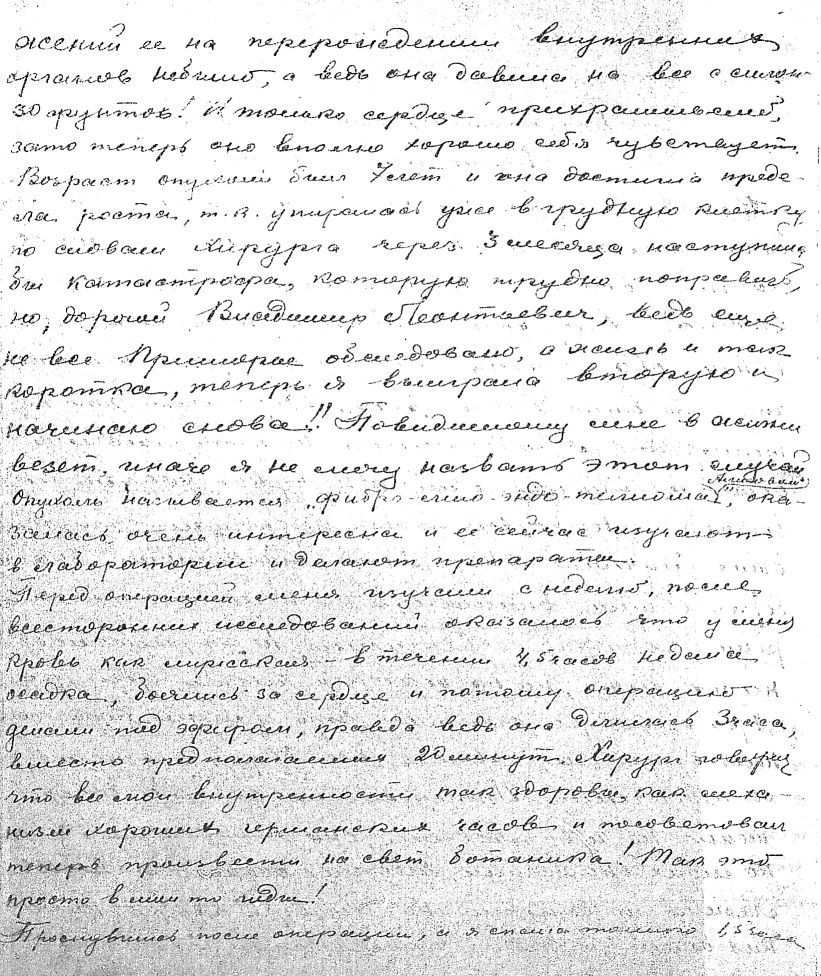 жений ее на перерождении внутренних
органов небыло, а ведь она давила на все с силой
30 фунтов! И только сердце прихрамывало,
зато теперь оно вполне хорошо себя чувствует.
Возраст опухоли был 7 лет и она достигла преде-
ла роста, т.к. упиралась уже в грудную клетку
по словам хирурга через 3 месяца наступила
бы катастрофа, которую трудно поправить,
но, дорогой Владимир Леонтьевич, ведь еще
не все Приморье обследовано, а жизнь и так
коротка, теперь я выиграла вторую и
начинаю снова!! Повидимому мне в жизни
везет, иначе я не могу назвать этот случай
Опухоль называется „фибро-мио-эндо-телиома", ока-
залась очень интересна и ее сейчас изучают
в лаборатории и делают препараты.
Перед операцией меня изучали с неделю, после
всесторонних исследований оказалось что у меня
кровь как - в течении 4,5 часов не дала
осадка, боялись за сердце и потому операцию
делали под эфиром, правда ведь она длилась 3 часа,
вместо предполагаемых 20 минут. Хирург говорил
что все мои внутренности так здоровы, как меха-
низм хороших германских часов и посоветовал
теперь произвести на свет ботаника! Так это
просто в
Проснувшись после операции, а я спала только 1,5 часа